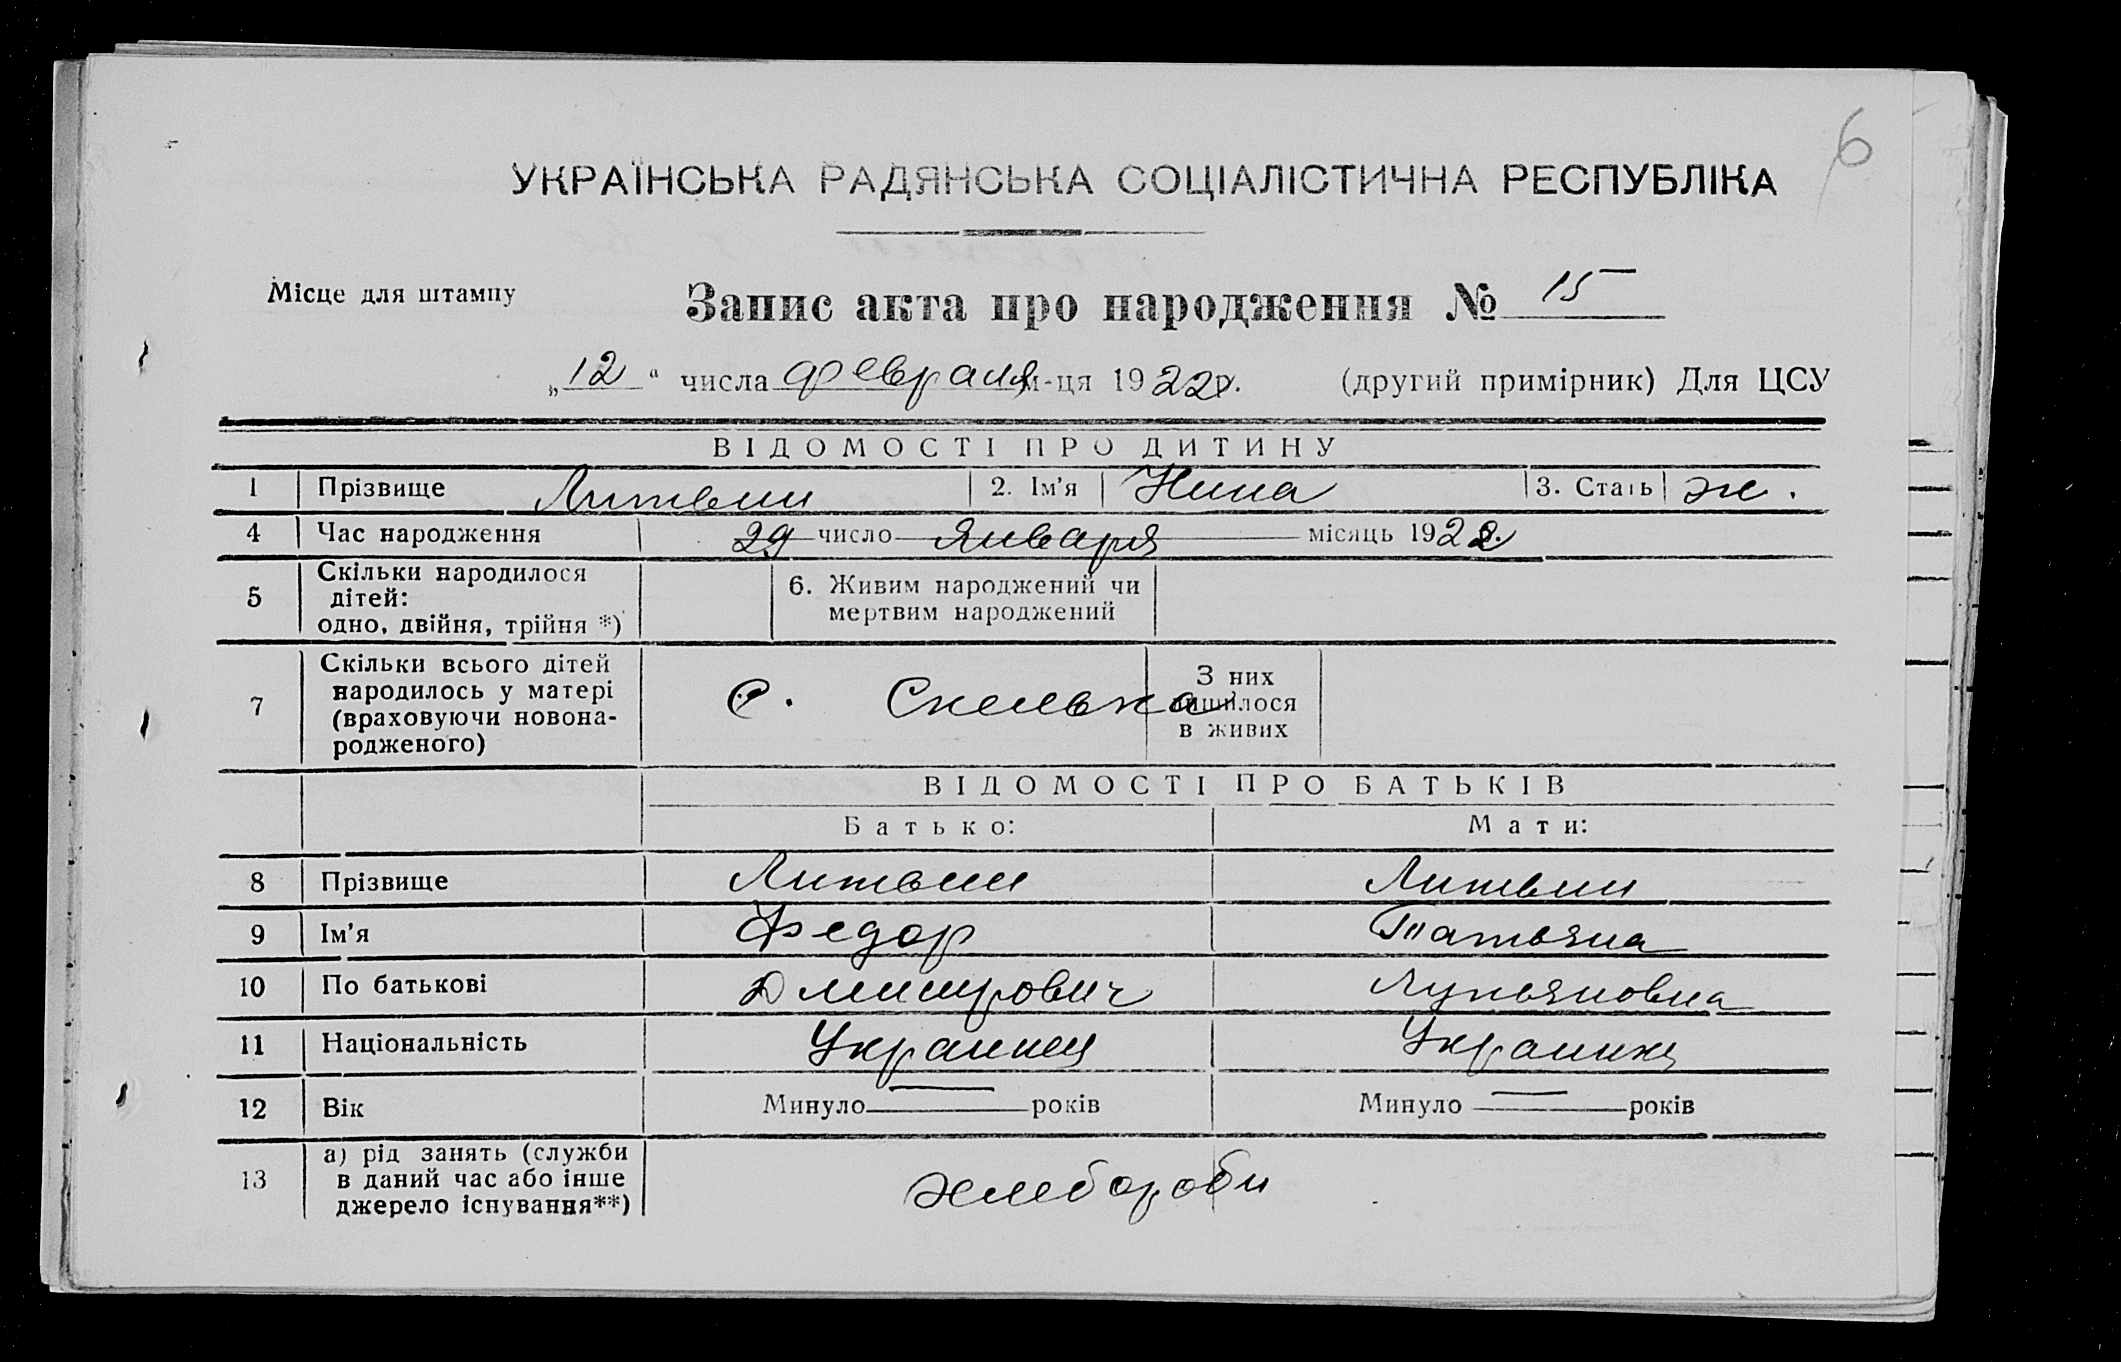 6
УКРАЇНСЬКА РАДЯНСЬКА СОЦІАЛІСТИЧНА РЕСПУБЛІКА
Місце для штампу
Запис акта про народження № 15
„12“ числа февраля м-ця 1922 р. (другий примірник) Для ЦСУ
ВІДОМОСТІ ПРО ДИТИНУ
1 Прізвище Литвин 2. Ім’я Нина 3. Стать ж.
4 Час народження 29 число января місяць 1922.
5 Скільки народилося дітей: одно, двійня, трійня *) 6. Живим народжений чи мертвим народжений
7 Скільки всього дітей народилось у матері (враховуючи новонародженого) с. Скелька З них лишилося в живих
ВІДОМОСТІ ПРО БАТЬКІВ
Батько: Мати:
8 Прізвище Литвин Литвин
9 Ім’я Федор Татьяна
10 По батькові Дмитрович Лукьяновна
11 Національність Украинец Украинк
12 Вік Минуло — років Минуло — років
13 а) рід занять (служби в даний час або інше джерело існування**) хлебороби